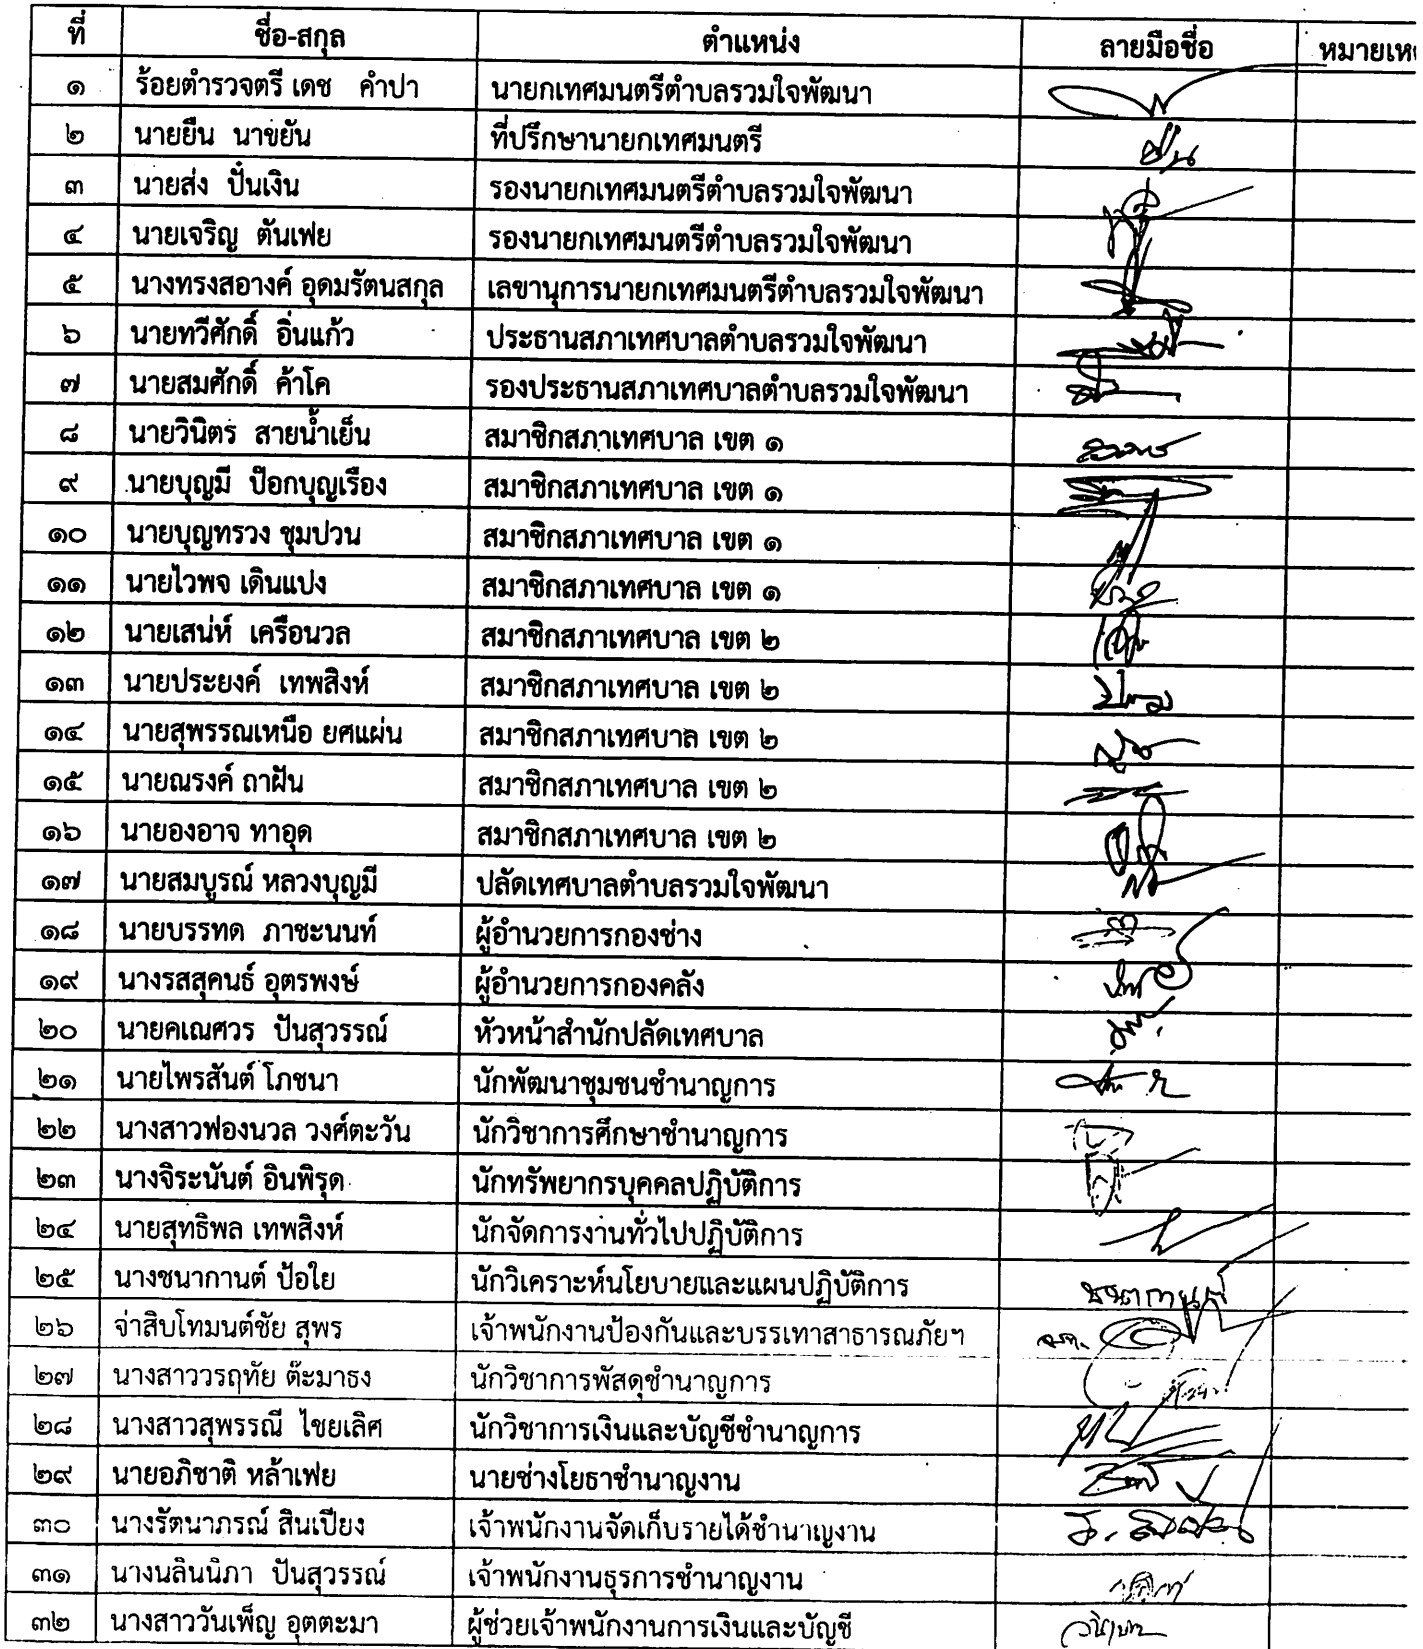 ที่ ชื่อ-สกุล ตำแหน่ง ลายมือชื่อ หมายเห
๑ ร้อยตำรวจตรี เดช คำปา นายกเทศมนตรีตำบลรวมใจพัฒนา
๒ นายยืน นาขยัน ที่ปรึกษานายกเทศมนตรี
๓ นายส่ง ปั๋นเงิน รองนายกเทศมนตรีตำบลรวมใจพัฒนา
๔ นายเจริญ ตันเฟย รองนายกเทศมนตรีตำบลรวมใจพัฒนา
๕ นางทรงสอางค์ อุดมรัตนสกุล เลขานุการนายกเทศมนตรีตำบลรวมใจพัฒนา
๖ นายทวีศักดิ์ อิ่นแก้ว ประธานสภาเทศบาลตำบลรวมใจพัฒนา
๗ นายสมศักดิ์ ค้าโค รองประธานสภาเทศบาลตำบลรวมใจพัฒนา
๘ นายวินิตร สายน้ำเย็น สมาชิกสภาเทศบาล เขต ๑
๙ นายบุญมี ป๊อกบุญเรือง สมาชิกสภาเทศบาล เขต ๑
๑๐ นายบุญทรวง ชุมปวน สมาชิกสภาเทศบาล เขต ๑
๑๑ นายไวพจ เดินแปง สมาชิกสภาเทศบาล เขต ๑
๑๒ นายเสน่ห์ เครือนวล สมาชิกสภาเทศบาล เขต ๒
๑๓ นายประยงค์ เทพสิงห์ สมาชิกสภาเทศบาล เขต ๒
๑๔ นายสุพรรณเหนือ ยศแผ่น สมาชิกสภาเทศบาล เขต ๒
๑๕ นายณรงค์ ถาฝัน สมาชิกสภาเทศบาล เขต ๒
๑๖ นายองอาจ ทาอุด สมาชิกสภาเทศบาล เขต ๒
๑๗ นายสมบูรณ์ หลวงบุญมี ปลัดเทศบาลตำบลรวมใจพัฒนา
๑๘ นายบรรทด ภาชะนนท์ ผู้อำนวยการกองช่าง
๑๙ นางรสสุคนธ์ อุตรพงษ์ ผู้อำนวยการกองคลัง
๒๐ นายคเณศวร ปันสุวรรณ์ หัวหน้าสำนักปลัดเทศบาล
๒๑ นายไพรสันต์ โภชนา นักพัฒนาชุมชนชำนาญการ
๒๒ นางสาวฟองนวล วงศ์ตะวัน นักวิชาการศึกษาชำนาญการ
๒๓ นางจิระนันต์ อินพิรุด นักทรัพยากรบุคคลปฏิบัติการ
๒๔ นายสุทธิพล เทพสิงห์ นักจัดการงานทั่วไปปฏิบัติการ
๒๕ นางชนากานต์ ป้อใย นักวิเคราะห์นโยบายและแผนปฏิบัติการ
๒๖ จ่าสิบโทมนต์ชัย สุพร เจ้าพนักงานป้องกันและบรรเทาสาธารณภัยฯ
๒๗ นางสาววรฤทัย ต๊ะมาธง นักวิชาการพัสดุชำนาญการ
๒๘ นางสาวสุพรรณี ไชยเลิศ นักวิชาการเงินและบัญชีชำนาญการ
๒๙ นายอภิชาติ หล้าเฟย นายช่างโยธาชำนาญงาน
๓๐ นางรัตนาภรณ์ สินเปียง เจ้าพนักงานจัดเก็บรายได้ชำนาญงาน
๓๑ นางนลินนิภา ปันสุวรรณ์ เจ้าพนักงานธุรการชำนาญงาน
๓๒ นางสาววันเพ็ญ อุตตะมา ผู้ช่วยเจ้าพนักงานการเงินและบัญชี